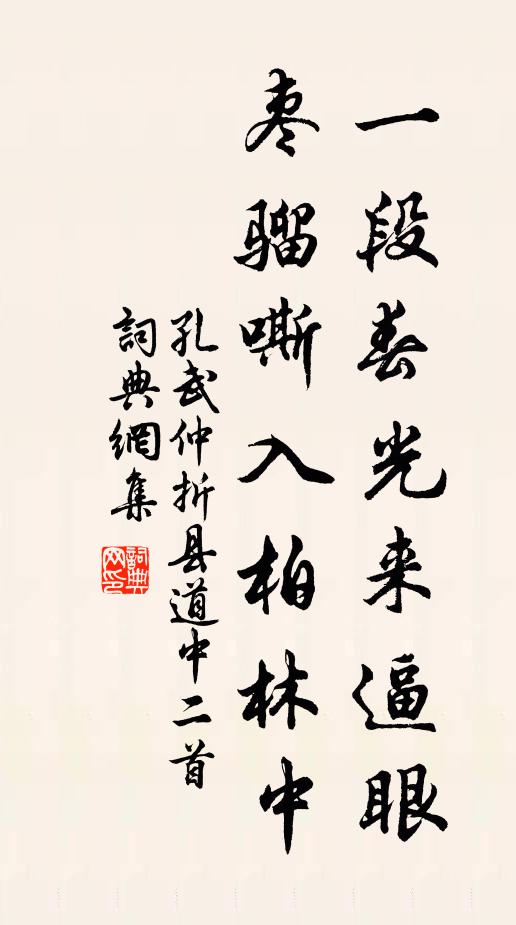 一段春光来逼眼
枣骝嘶入柏林中
孔武仲折县道中二首
詞典網集
詞典网印